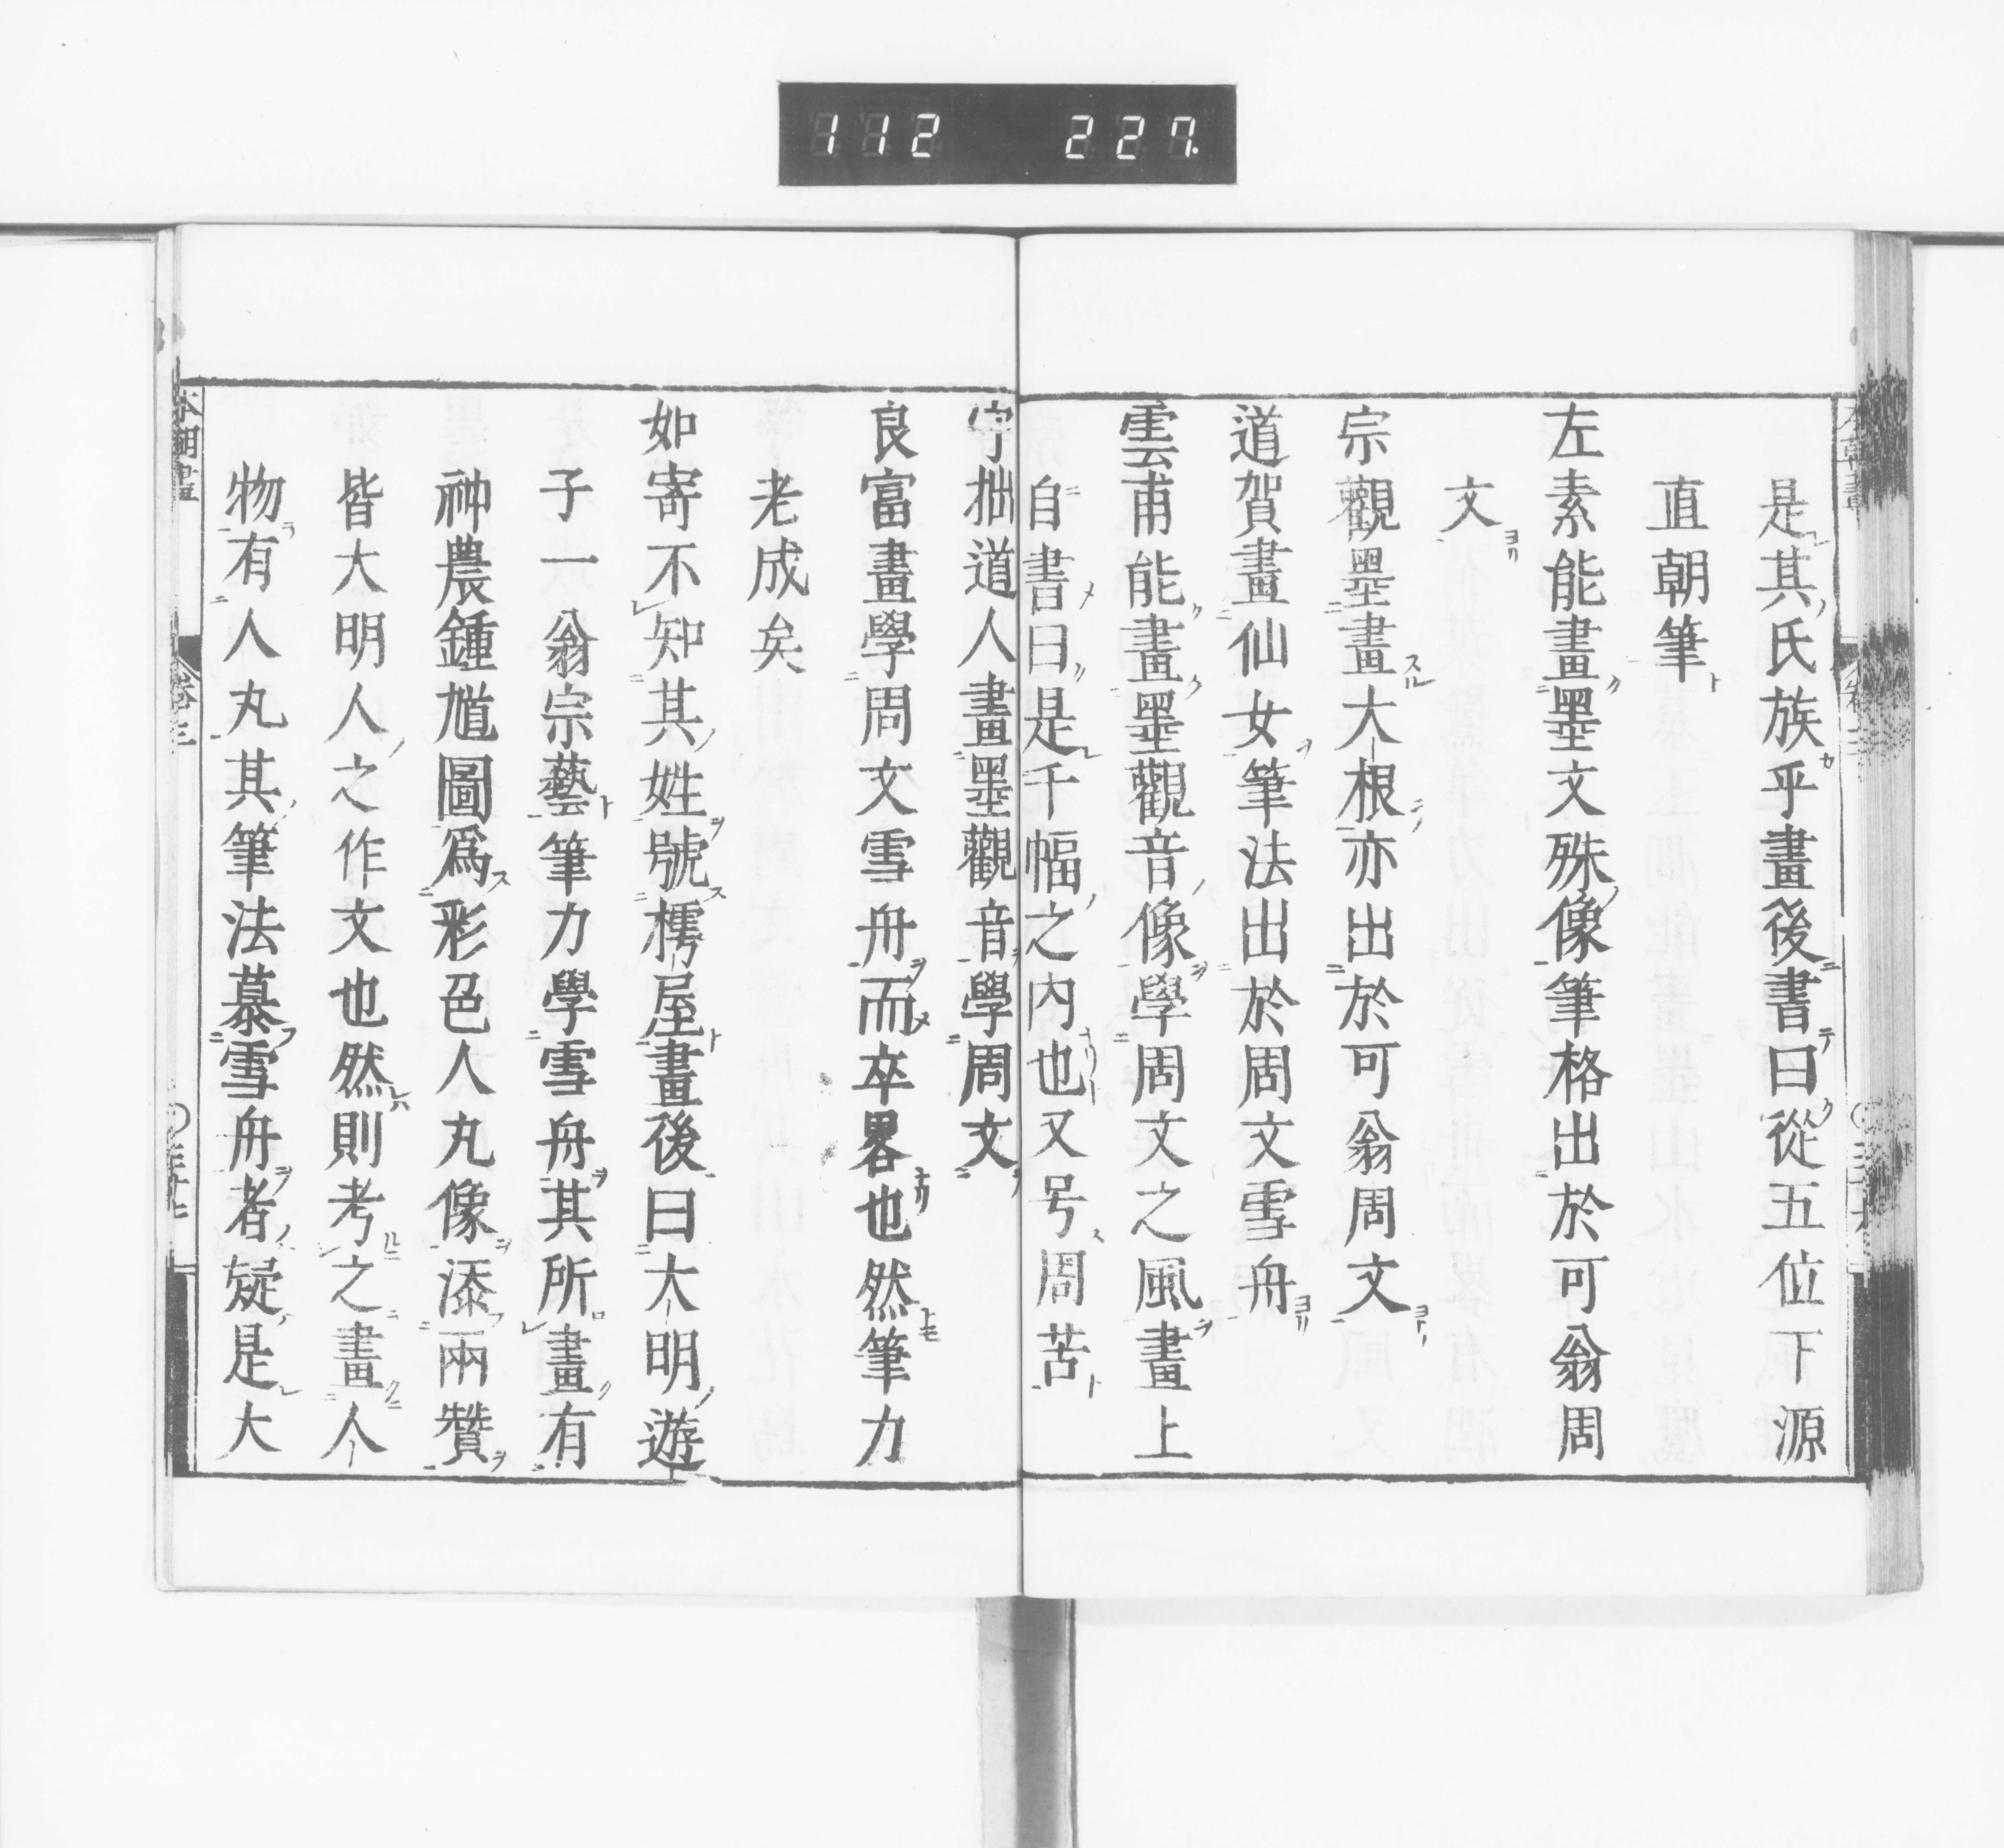 112 227.
是其氏族乎畫後書曰從五位下源
直朝筆
左素能畫墨文殊像筆格出於可翁周
文
宗觀墨畫大根亦出於可翁周文
道賀畫仙女筆法出於周文雪舟
雲甫能畫墨觀音像學周文之風畫上
自書曰是千幅之内也又号周苦
守拙道人畫墨觀音學周文
良富畫學周文雪舟而卒畧也然筆力
老成矣
如寄不知其姓號樗屋畫後曰大明遊
子一翁宗藝筆力學雪舟其所畫有
神農鍾馗圖爲彩色人丸像添兩贊
皆大明人之作文也然則考之畫人
物有人丸其筆法慕雪舟者疑是大
本朝畫
卷三